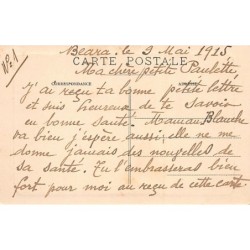 N° 1
Beara. le 2 Mai 1915
Ma chère petite Paulette,
CARTE POSTALE
CORRESPONDANCE
J'ai reçu ta bonne petite lettre
et suis heureuse de te savoir
en bonne santé. Maman Blanche
va bien j'espère aussi, elle ne me
donne jamais des nouvelles de
sa santé. Tu l'embrasseras bien
fort pour moi au reçu de cette carte